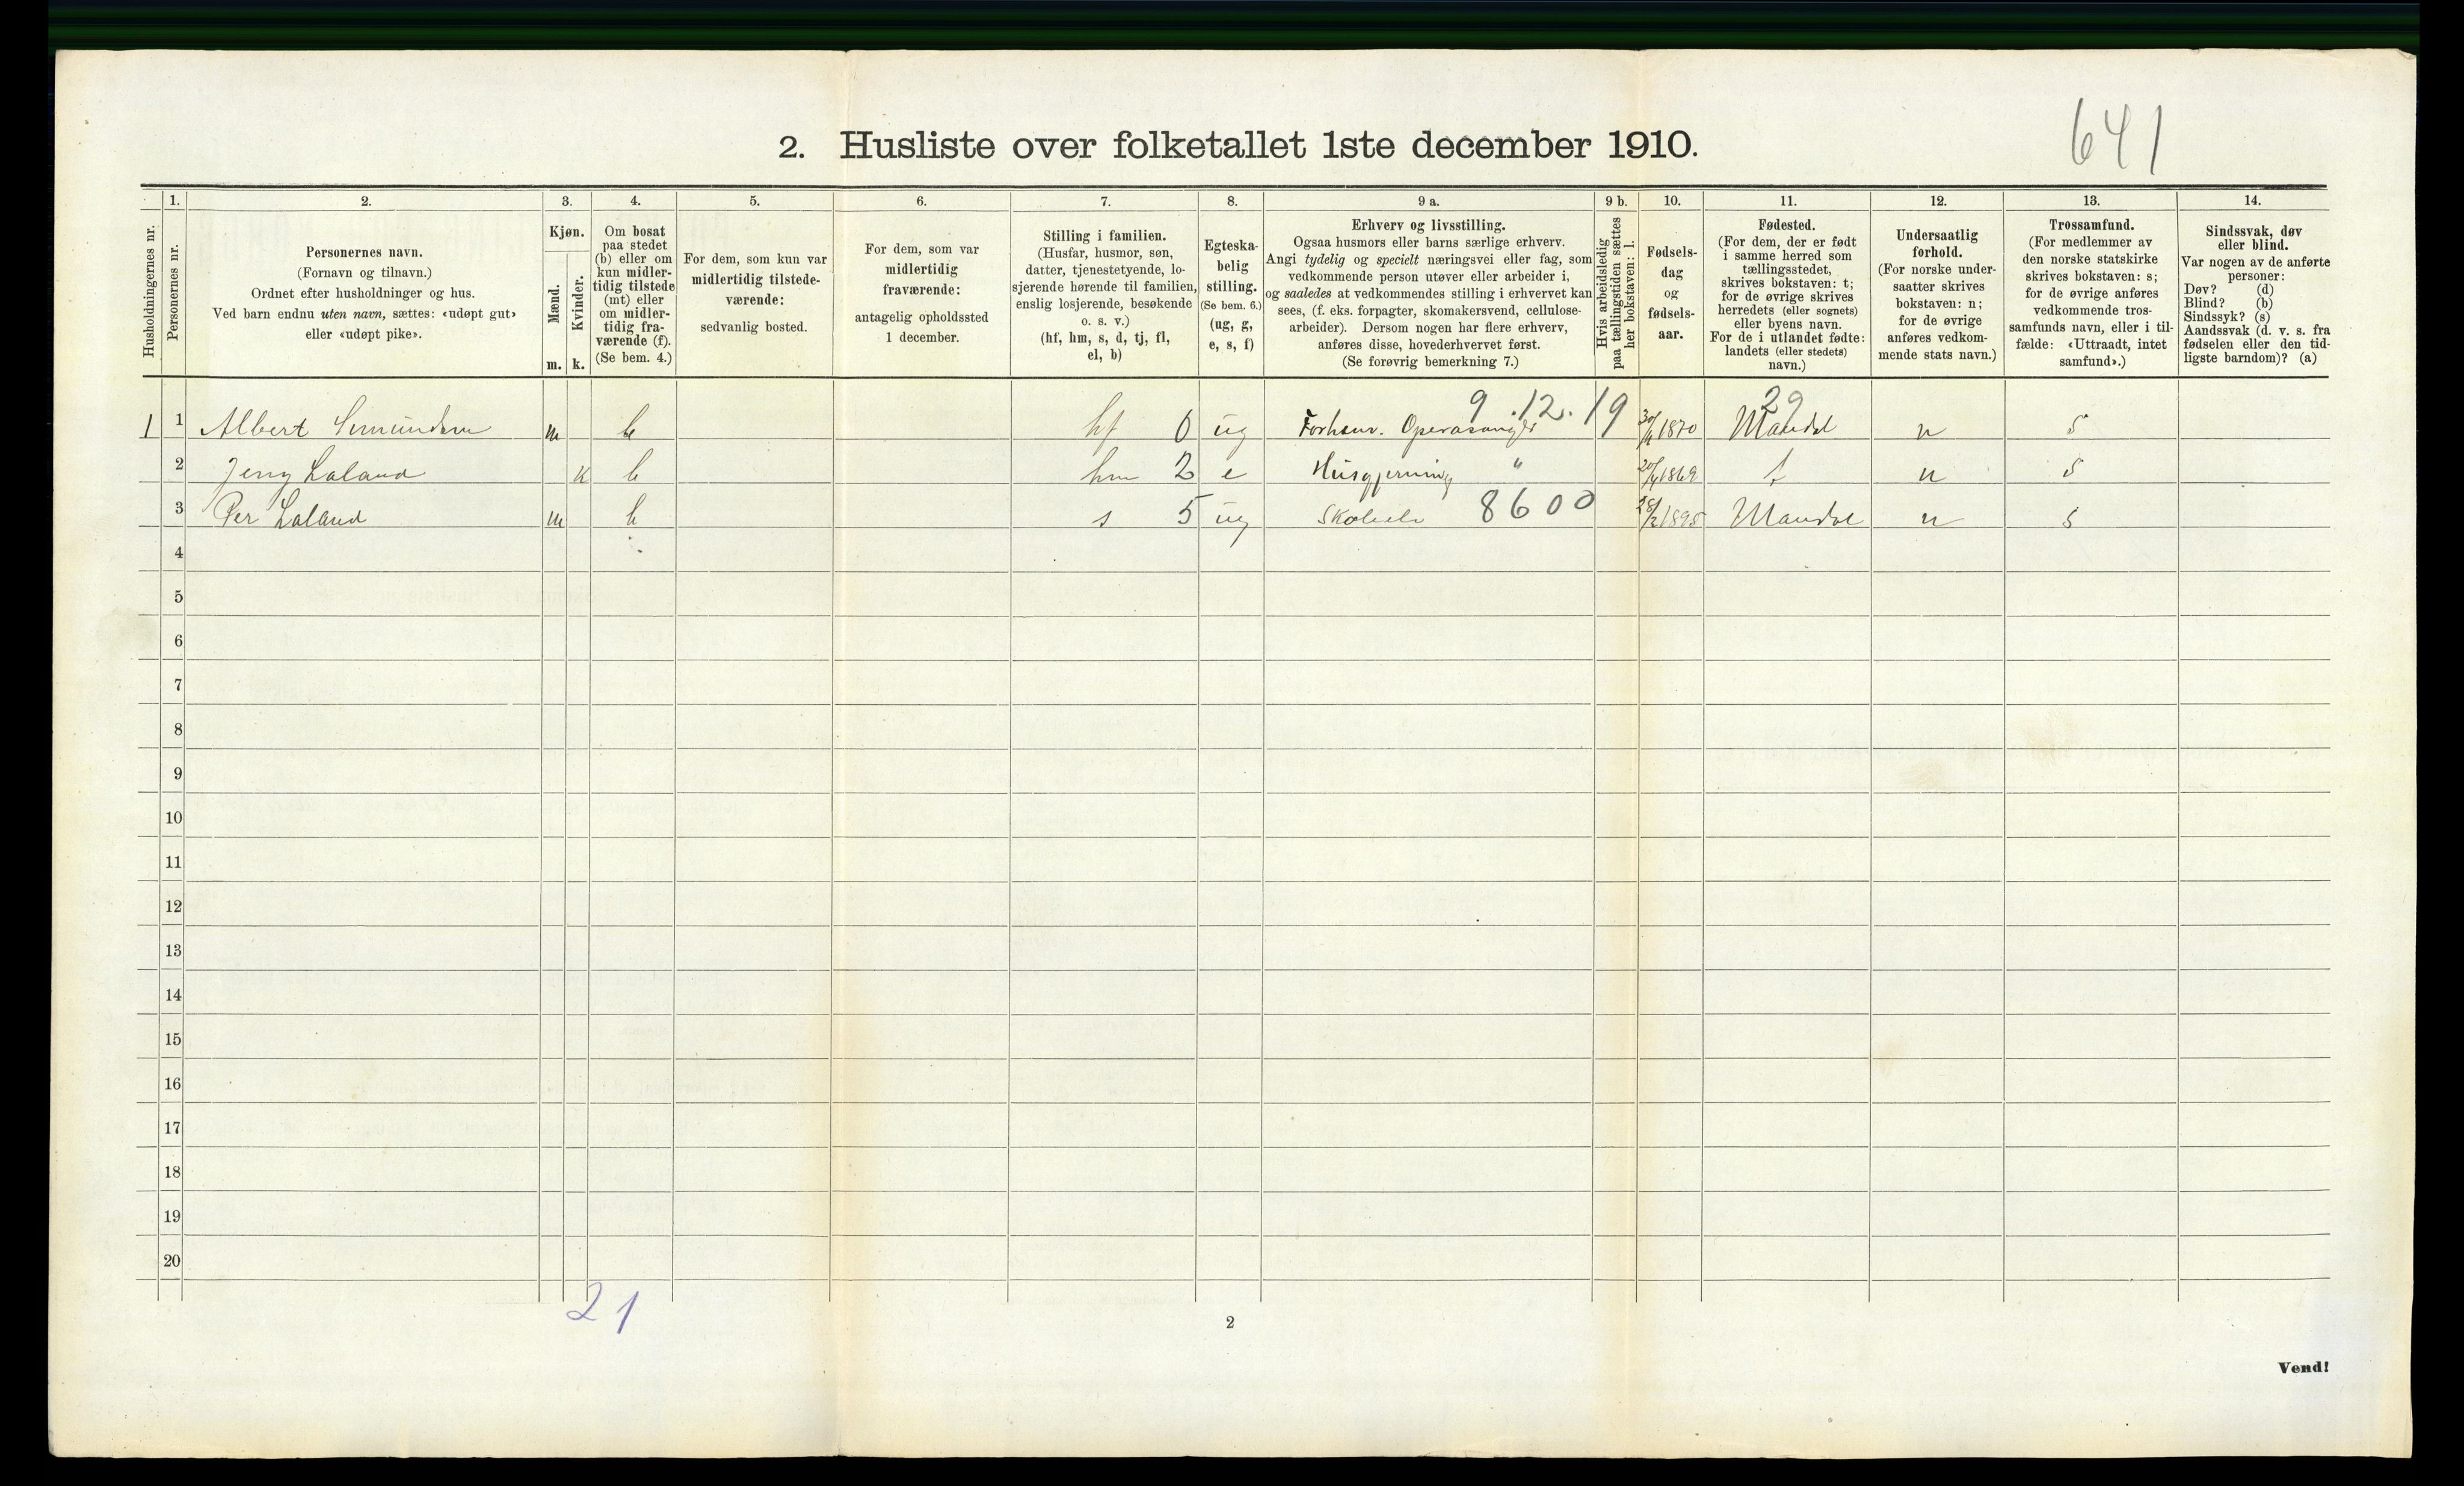 641
2. Husliste over folketallet 1ste december 1910.
Husholdningernes nr.
1.
Personernes nr.
2.
Personernes navn.
(Fornavn og tilnavn.)
Ordnet efter husholdninger og hus.
Ved barn endnu uten navn, sættes: «udøpt gut»
eller «udøpt pike».
3.
Kjøn.
Mænd.
Kvinder.
m. k.
4.
Om bosat
paa stedet
(b) eller om
kun midler-
tidig tilstede
(mt) eller
om midler-
tidig fra-
værende (f).
(Se bem. 4.)
5.
For dem, som kun var
midlertidig tilstede-
værende:
sedvanlig bosted.
6.
For dem, som var
midlertidig
fraværende:
antagelig opholdssted
1 december.
7.
Stilling i familien.
(Husfar, husmor, søn,
datter, tjenestetyende, lo-
sjerende hørende til familien,
enslig losjerende, besøkende
o. s. v.)
(hf, hm, s, d, tj, fl,
el, b)
8.
Egteska-
belig
stilling.
(Se bem. 6.)
(ug, g,
e, s, f)
9 a.
Erhverv og livsstilling.
Ogsaa husmors eller barns særlige erhverv.
Angi tydelig og specielt næringsvei eller fag, som
vedkommende person utøver eller arbeider i,
og saaledes at vedkommendes stilling i erhvervet kan
sees, (f. eks. forpagter, skomakersvend, cellulose-
arbeider). Dersom nogen har flere erhverv,
anføres disse, hovederhvervet først.
(Se forøvrig bemerkning 7.)
9 b.
Hvis arbeidsledig
paa tællingstiden sættes
her bokstaven: l.
10.
Fødsels-
dag
og
fødsels-
aar.
11.
Fødested.
(For dem, der er født
i samme herred som
tællingsstedet,
skrives bokstaven: t;
for de øvrige skrives
herredets (eller sognets)
eller byens navn.
For de i utlandet fødte:
landets (eller stedets)
navn.)
12.
Undersaatlig
forhold.
(For norske under-
saatter skrives
bokstaven: n;
for de øvrige
anføres vedkom-
mende stats navn.)
13.
Trossamfund.
(For medlemmer av
den norske statskirke
skrives bokstaven: s;
for de øvrige anføres
vedkommende tros-
samfunds navn, eller i til-
fælde: «Uttraadt, intet
samfund».)
14.
Sindssvak, døv
eller blind.
Var nogen av de anførte
personer:
Døv? (d)
Blind? (b)
Sindssyk? (s)
Aandssvak (d. v. s. fra
fødselen eller den tid-
ligste barndom)? (a)
9.12.19 29
1 1 Albert m b hf 0 ug Forhenv. Operasanger 1870 Mandal n s
2 Jeny Laland k b hm 2 e Husgjerning " 20/4 1869 t n s
3 Per Laland m b s 5 ug 8600 28/2 1895 Mandal n s
4
5
6
7
8
9
10
11
12
13
14
15
16
17
18
19
20
2 1
2
Vend!